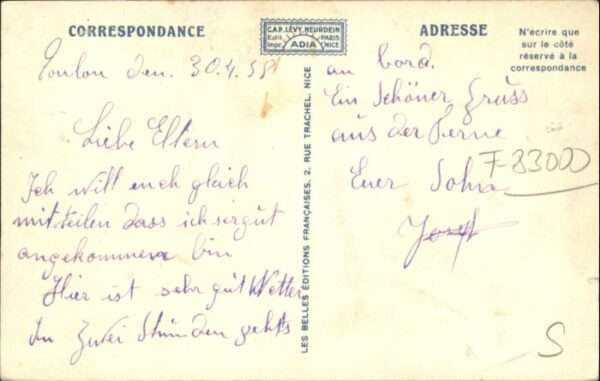 CORRESPONDANCE
CAP. LÉVY-NEURDEIN
Edit. PARIS
Impr. ADIA NICE
ADRESSE
N'écrire que
sur le côté
réservé à la
correspondance
Toulon den. 30.4.58
Liebe Eltern
Ich will euch gleich
mitteilen dass ich sergut
angekommen bin
Hier ist sehr gut Wetter
In zwei Stunden gehts
LES BELLES ÉDITIONS FRANÇAISES, 2, RUE TRACHEL, NICE
an bord.
Ein Schöner Gruss
aus der Ferne
Euer Sohn
Josef
F-83000
S